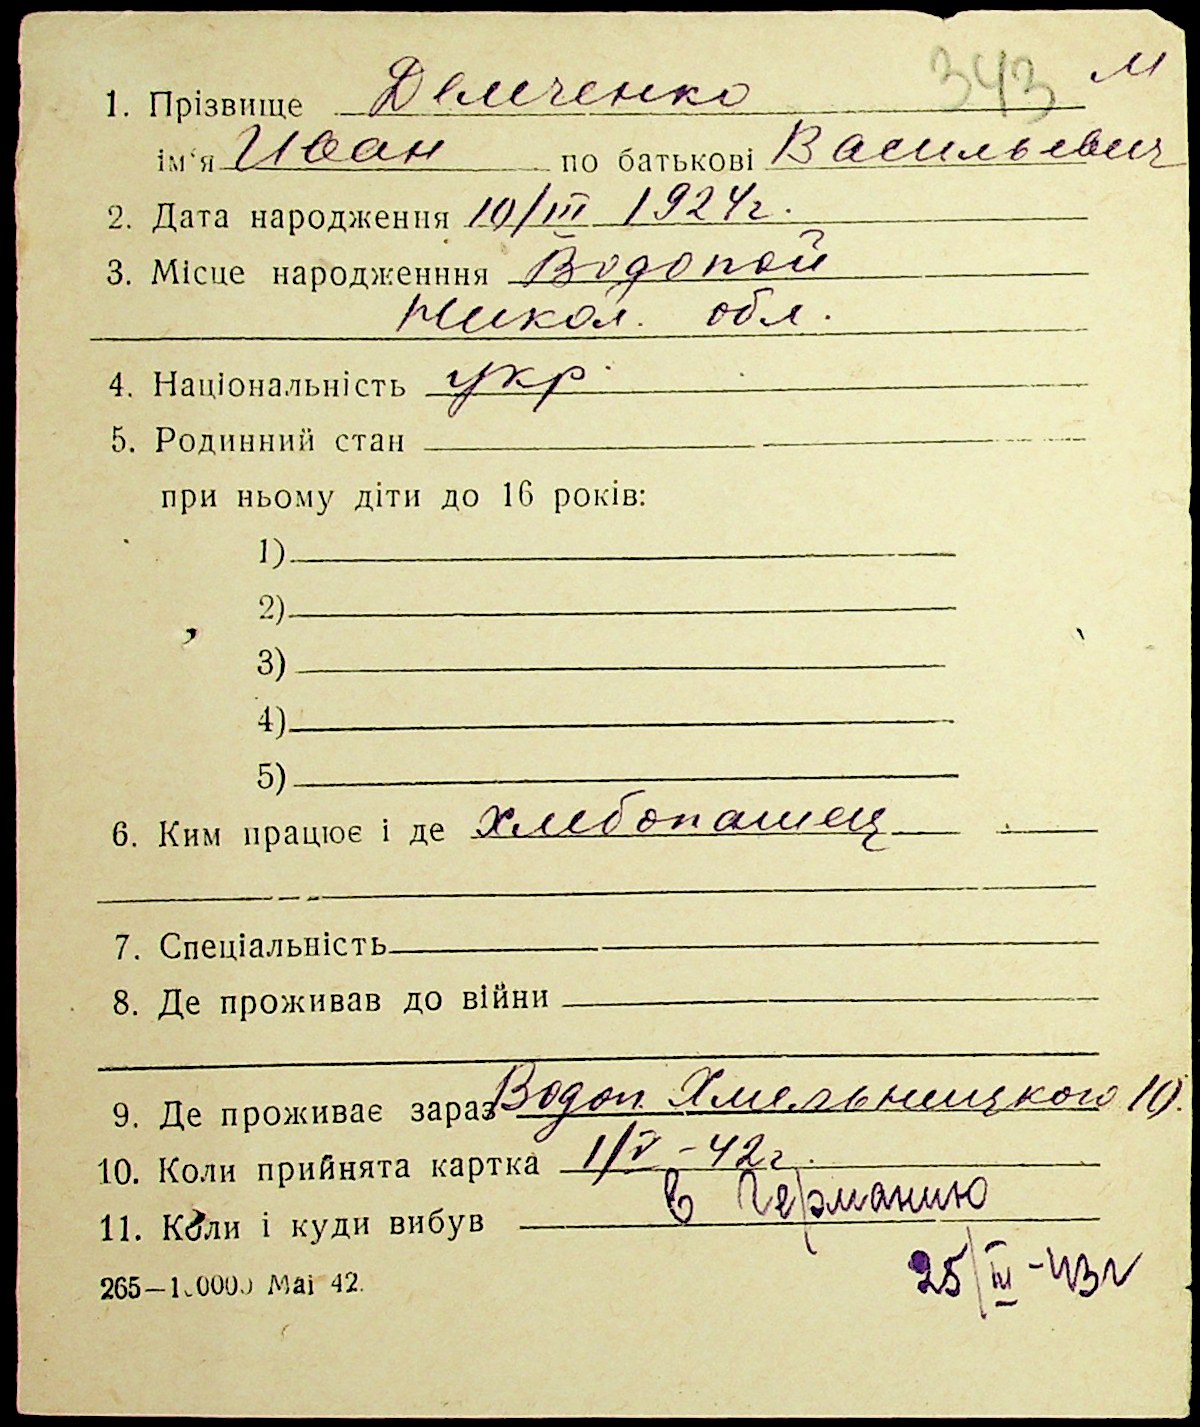 343 м
1. Прізвище Демченко
ім'я Иван по батькові Васильевич
2. Дата народження 10/III 1924г.
3. Місце народженння Водопой
Никол. обл.
4. Національність укр.
5. Родинний стан
при ньому діти до 16 років:
1)
2)
3)
4)
5)
6. Ким працює і де хлебопашец
7. Спеціальність
8. Де проживав до війни
9. Де проживає зараз Водоп. Хмельницкого 10.
10. Коли прийнята картка 1/V-42г.
11. Коли і куди вибув в Германию
25/III-43г
265—10000 Mai 42.